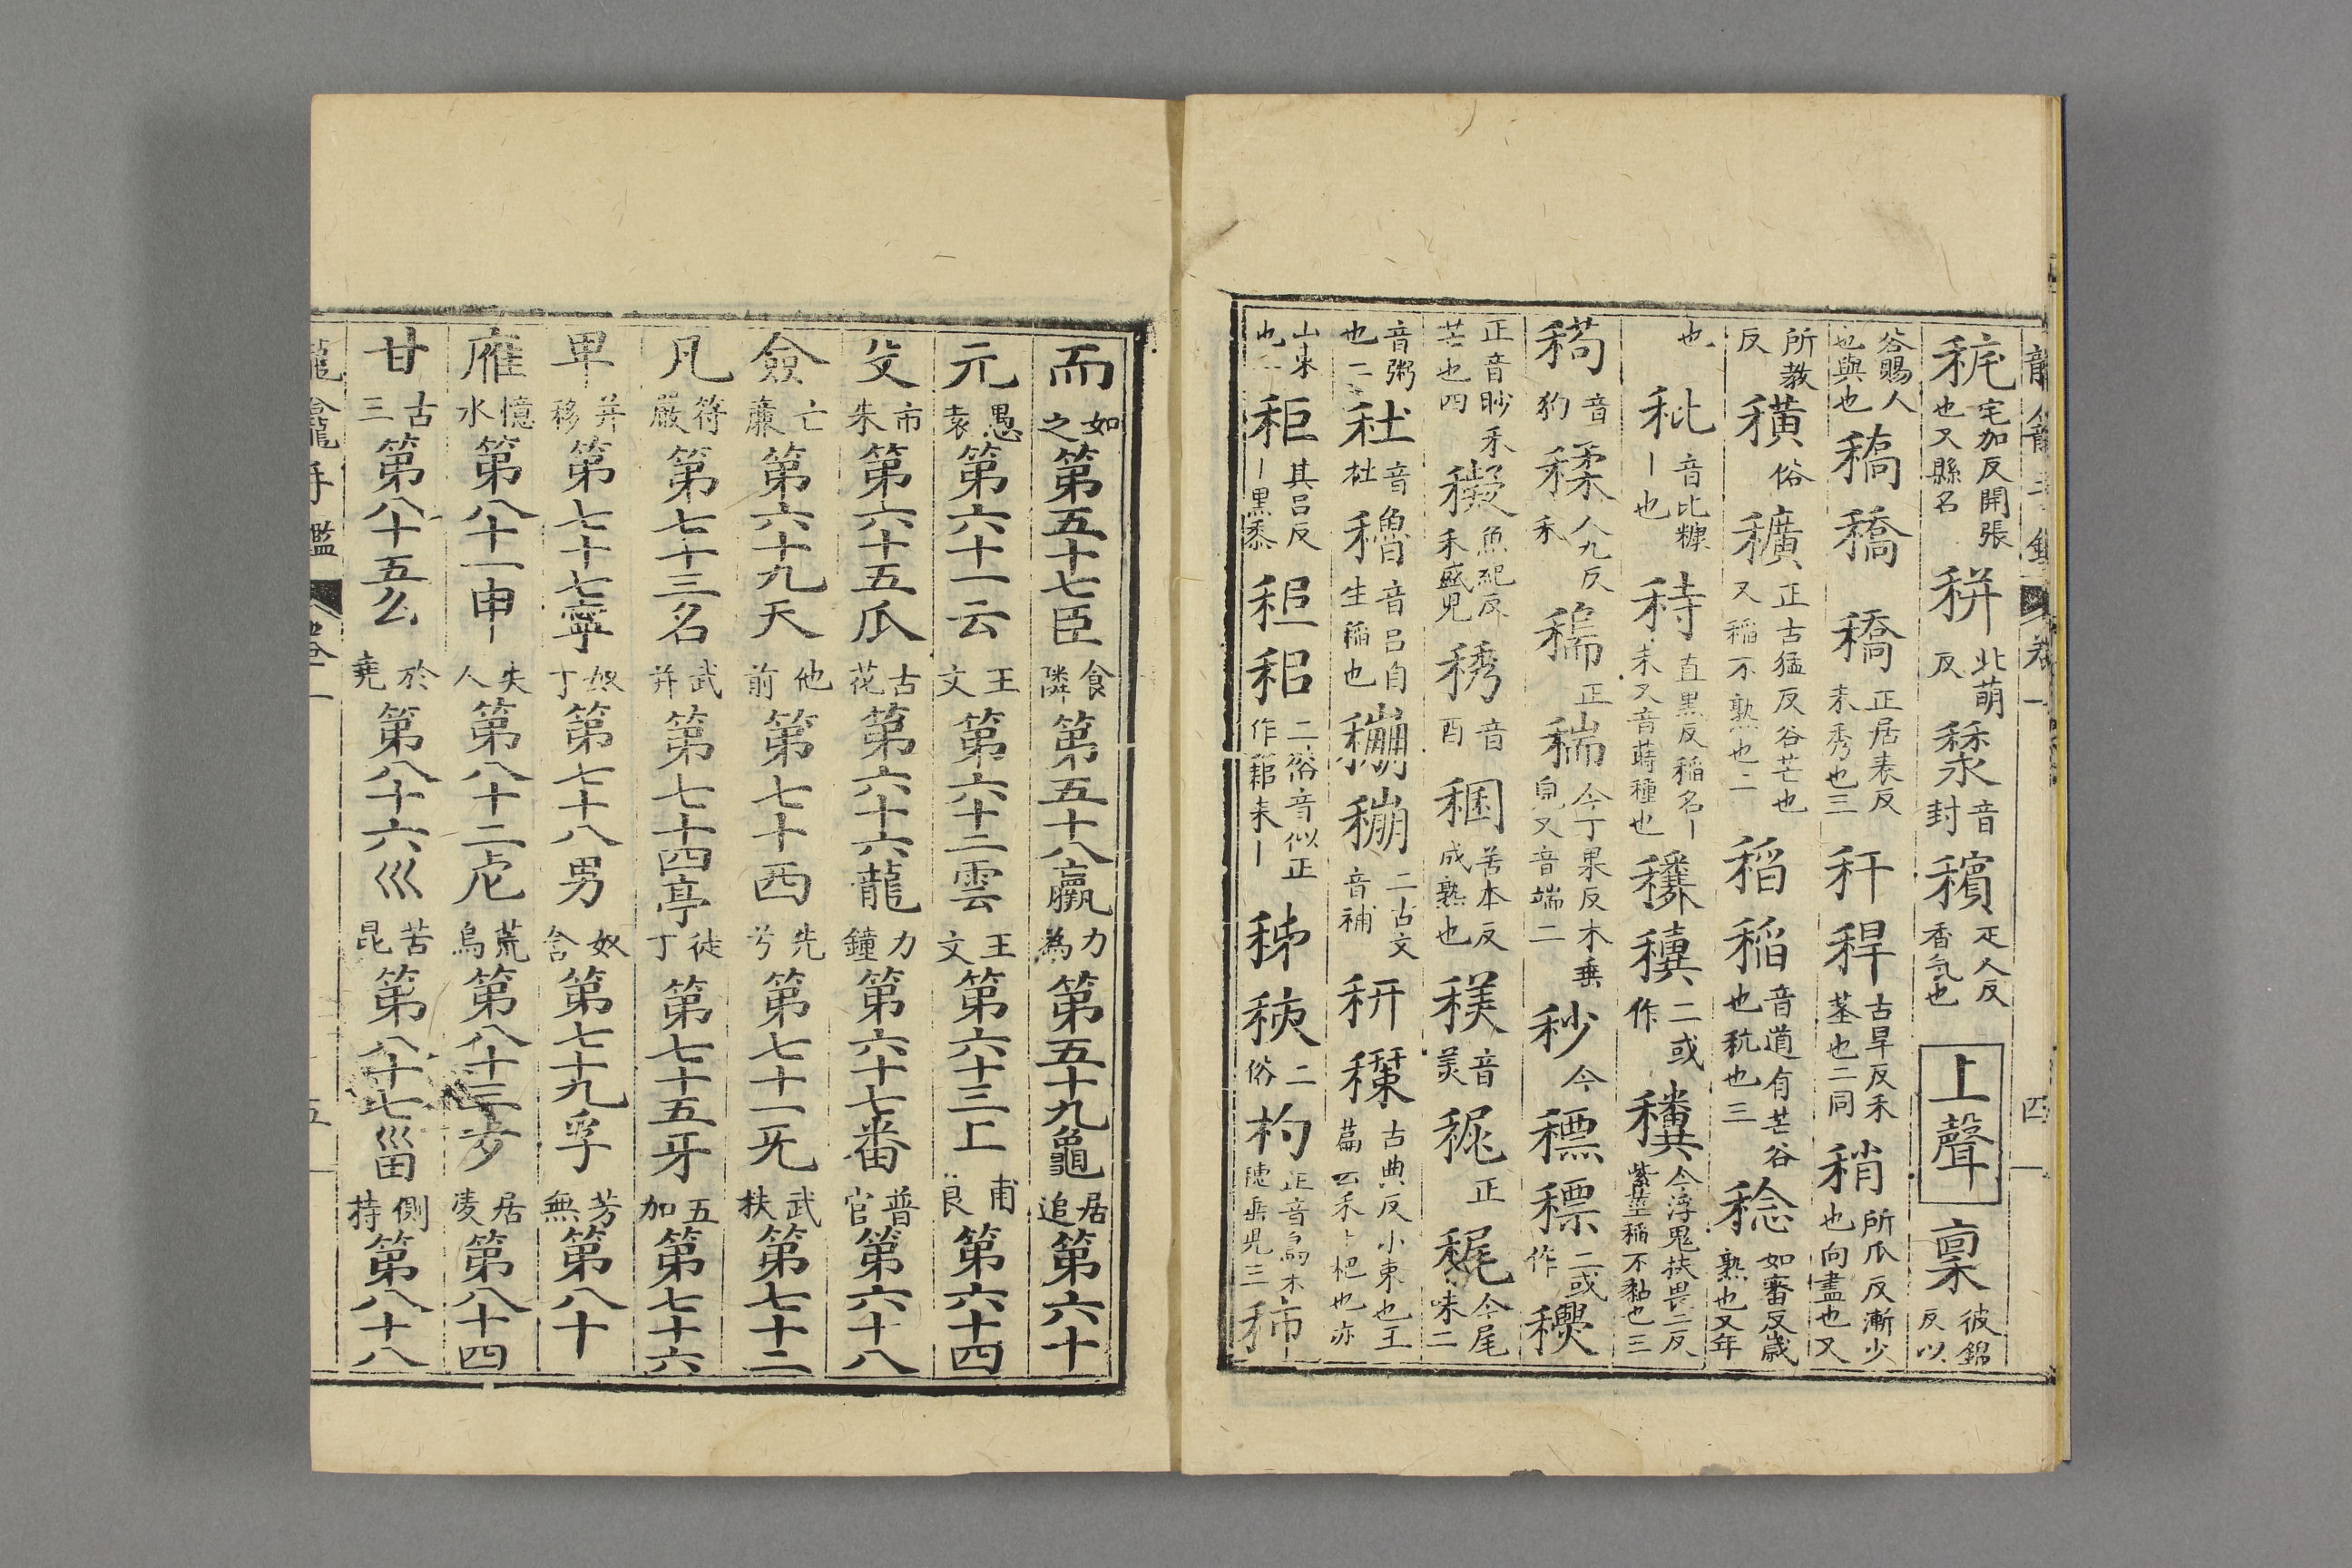 龍龕手鑑 卷一 四
秅宅加反開張也又縣名 𥞩北萌反 音封 穦疋人反香气也 上聲 稟彼錦反以
谷賜人也與也 穚 穚 穚正居表反禾秀也三 秆 稈古旱反禾莖也二同 稍所爪反漸少也向盡也又
所教反 䅣俗 穬正古猛反谷芒也又稻不熟也二 稻 稻音道有芒谷也秔也三 稔如審反歲熟也又年
也 秕音比糠丨也 秲直里反稻名丨禾又音蒔種也 二或作 今浮鬼扶畏二反紫莖稻不黏也三
音狗 人九反禾 正 䅩今丁果反木垂皃又音端二 秒今 標 標二或作
正音眇禾芒也四 䅲魚紀反禾盛皃 秀音酉 稇苦本反成熟也 音美 正 今尾味二
音粥也二 音杜 穭音呂自生稻也 二古文音補 古典反小束也玉篇云禾十把也亦
山米也 秬其呂反丨黑黍 二俗音似正作耜耒丨 二俗 正音鳥木 垂皃三
而如之第五十七臣食隣第五十八羸力為第五十九龜居追第六十
元愚袁第六十一云王文第六十二雲王文第六十三上甫良第六十四
殳市朱第六十五瓜古花第六十六龍力鐘第六十七番普官第六十八
僉亡廉第六十九天他前第七十西先兮第七十一旡武扶第七十二
凡符嚴第七十三名武并第七十四亭徒丁第七十五牙五加第七十六
卑并移第七十七寧奴丁第七十八男奴含第七十九孚芳無第八十
雁憶水第八十一申失人第八十二虍荒烏第八十三 居凌第八十四
甘古三第八十五么於堯第八十六巛苦昆第八十七甾側持第八十八
龍龕手鑑 五